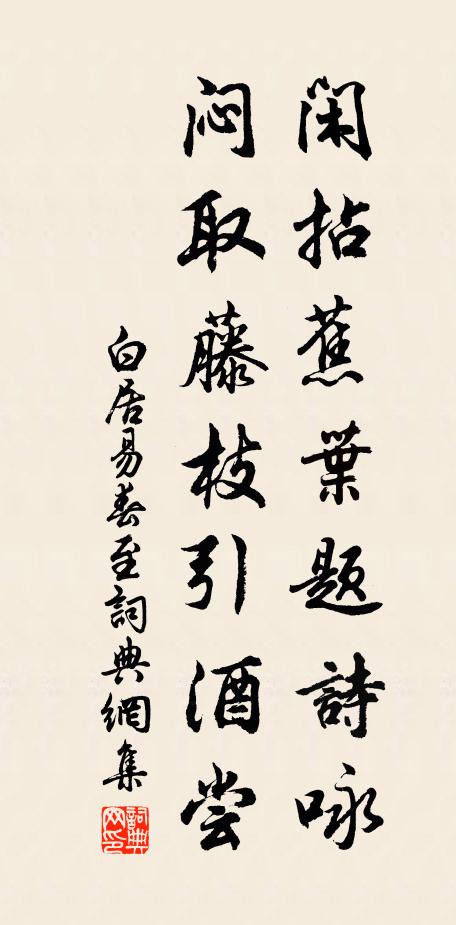 闲拈蕉葉题詩咏
闷取藤枝引酒尝
白居易春至詞典網集
詞典网印